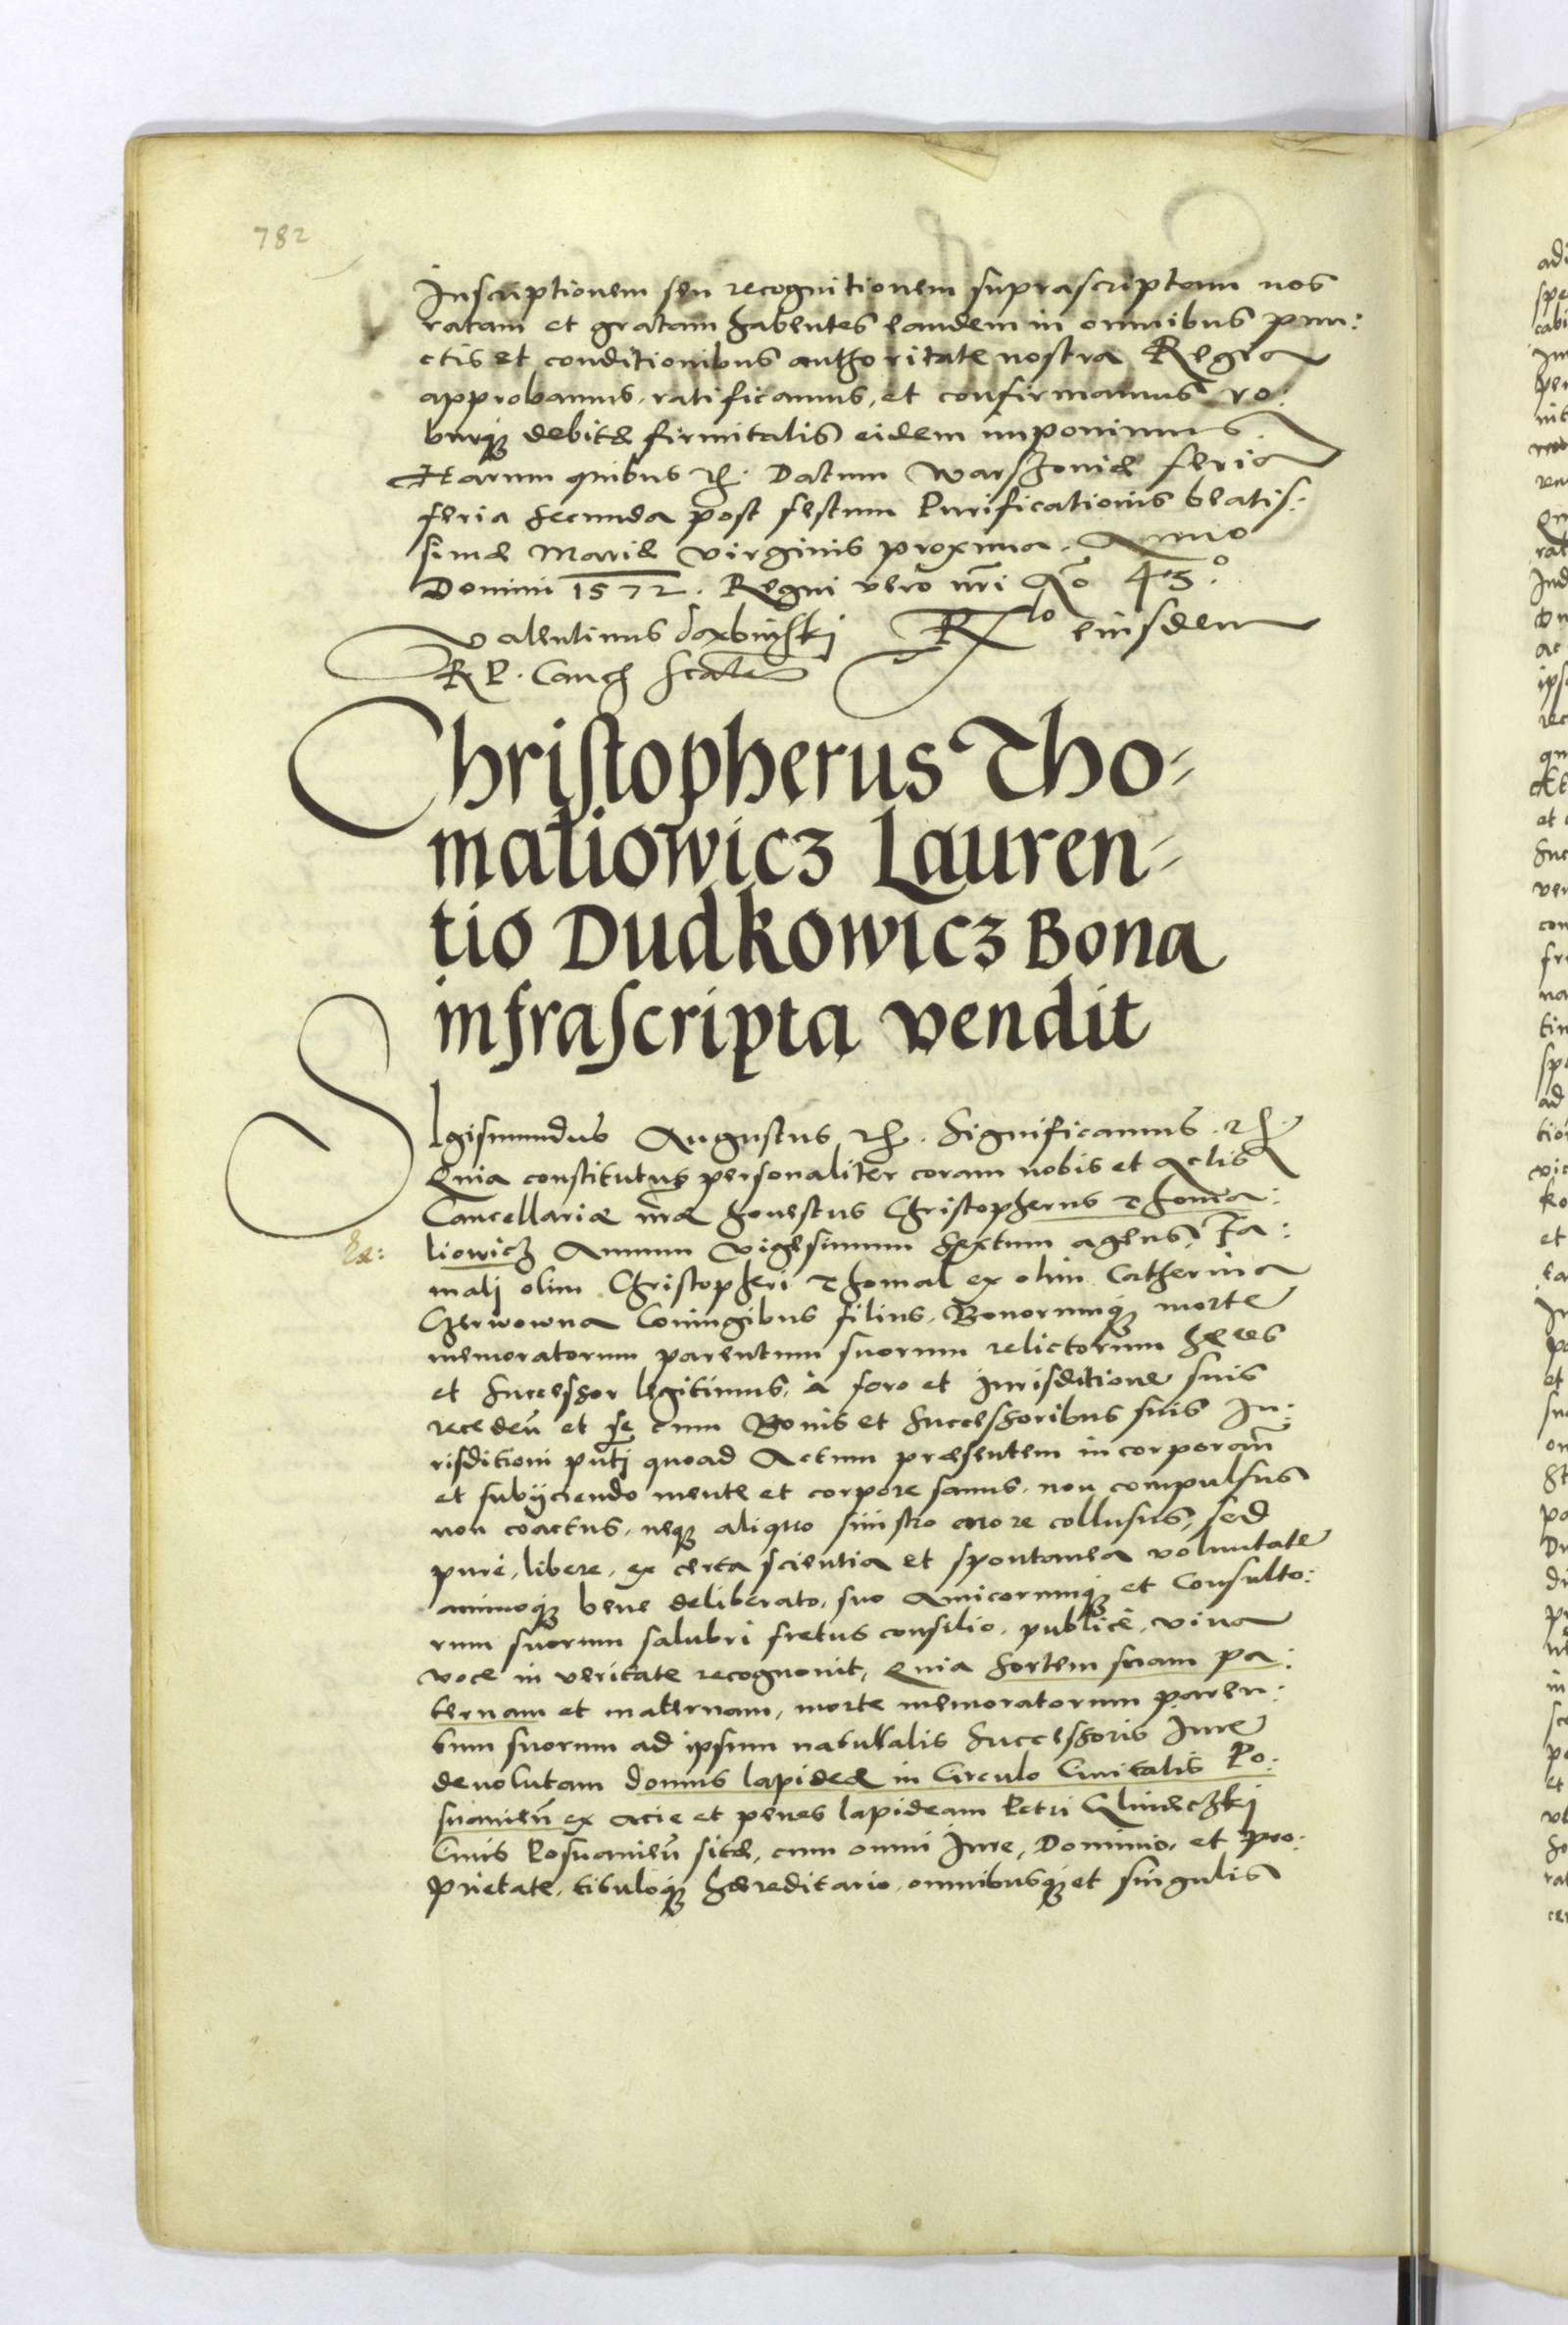 782
Inscriptionem seu recognitionem suprascriptam nos
ratam et gratam habentes eandem in omnibus pun:
ctis et conditionibus authoritate nostra Regia
approbamus, ratificamus, et confirmamus ro:
burq debitæ firmitatis eidem imponimus.
Harum quibus Datum Warszoviæ feria
feria secunda post festum Purificationis beatis:
simæ Mariæ virginis proxima. Anno
Domini 1572. Regni vero nri Ao 45.o
Valentinus Dąxbinski Rlo eiusdem
R P. Canc
Christopherus Tho-
maliowicz Lauren-
tio Dudkowicz Bona
infrascripta vendit
Sigismundus Augustus Significamus
Quia constitutus personaliter coram nobis et Actis
Cancellariæ nræ honestus Christopherus Thoma:
liowicz Annum vigesimum sextum agens, Fa:
mati olim Christopheri Thomal ex olim Catherina
Czerwowna Coniugibus filius, Bonorumq morte
memoratorum parentum suorum relictorum hæres
et Successor legitimus, à foro et Jurisditione suis
receden et se cum Bonis et Successoribus suis Ju:
risditioni pnti quoad Actum præsentem incorporam
et subijciendo mente et corpore sanus, non compulsus
non coactus, neq aliquo sinistro errore collusus, sed
purè, libere, ex certa scientia et spontanea voluntate
animoq bene deliberato, suo Amicorumq et Consulto:
rum suorum salubri fretus consilio, publicè, viva
voce in veritate recognovit, Quia Sortem suam pa:
ternam et maternam, morte memoratorum paren:
tum suorum ad ipsum naturalis Successoris Jure
devolutam domus lapideæ in Circulo Civitatis Po:
snanien ex acie et penes lapideam Petri Glineczki
Civis Posnanien sitæ, cum omni Jure, Dominio, et pro:
prietate, tituloq hæreditario, omnibusq et singulis